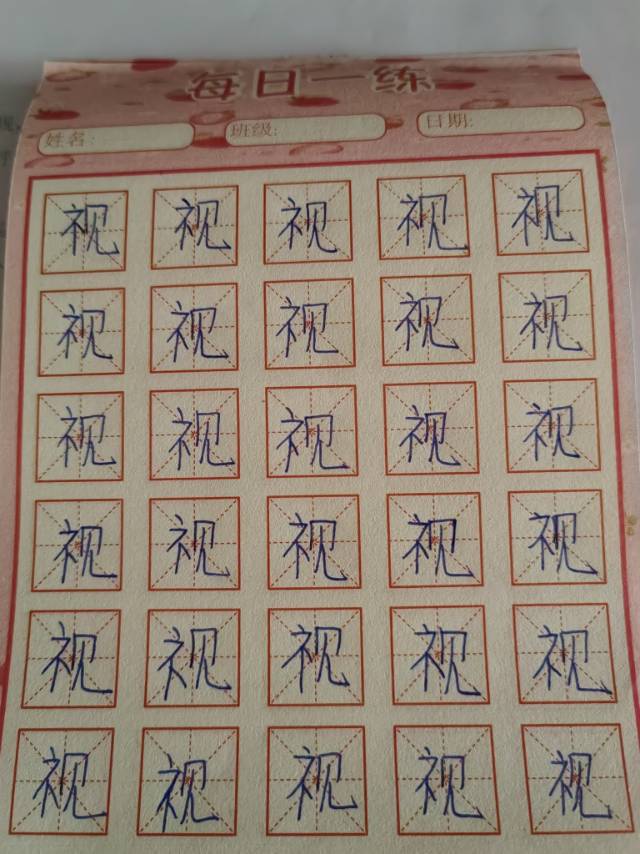 每日一练
姓名: 班级: 日期:
视 视 视 视 视
视 视 视 视 视
视 视 视 视 视
视 视 视 视 视
视 视 视 视 视
视 视 视 视 视